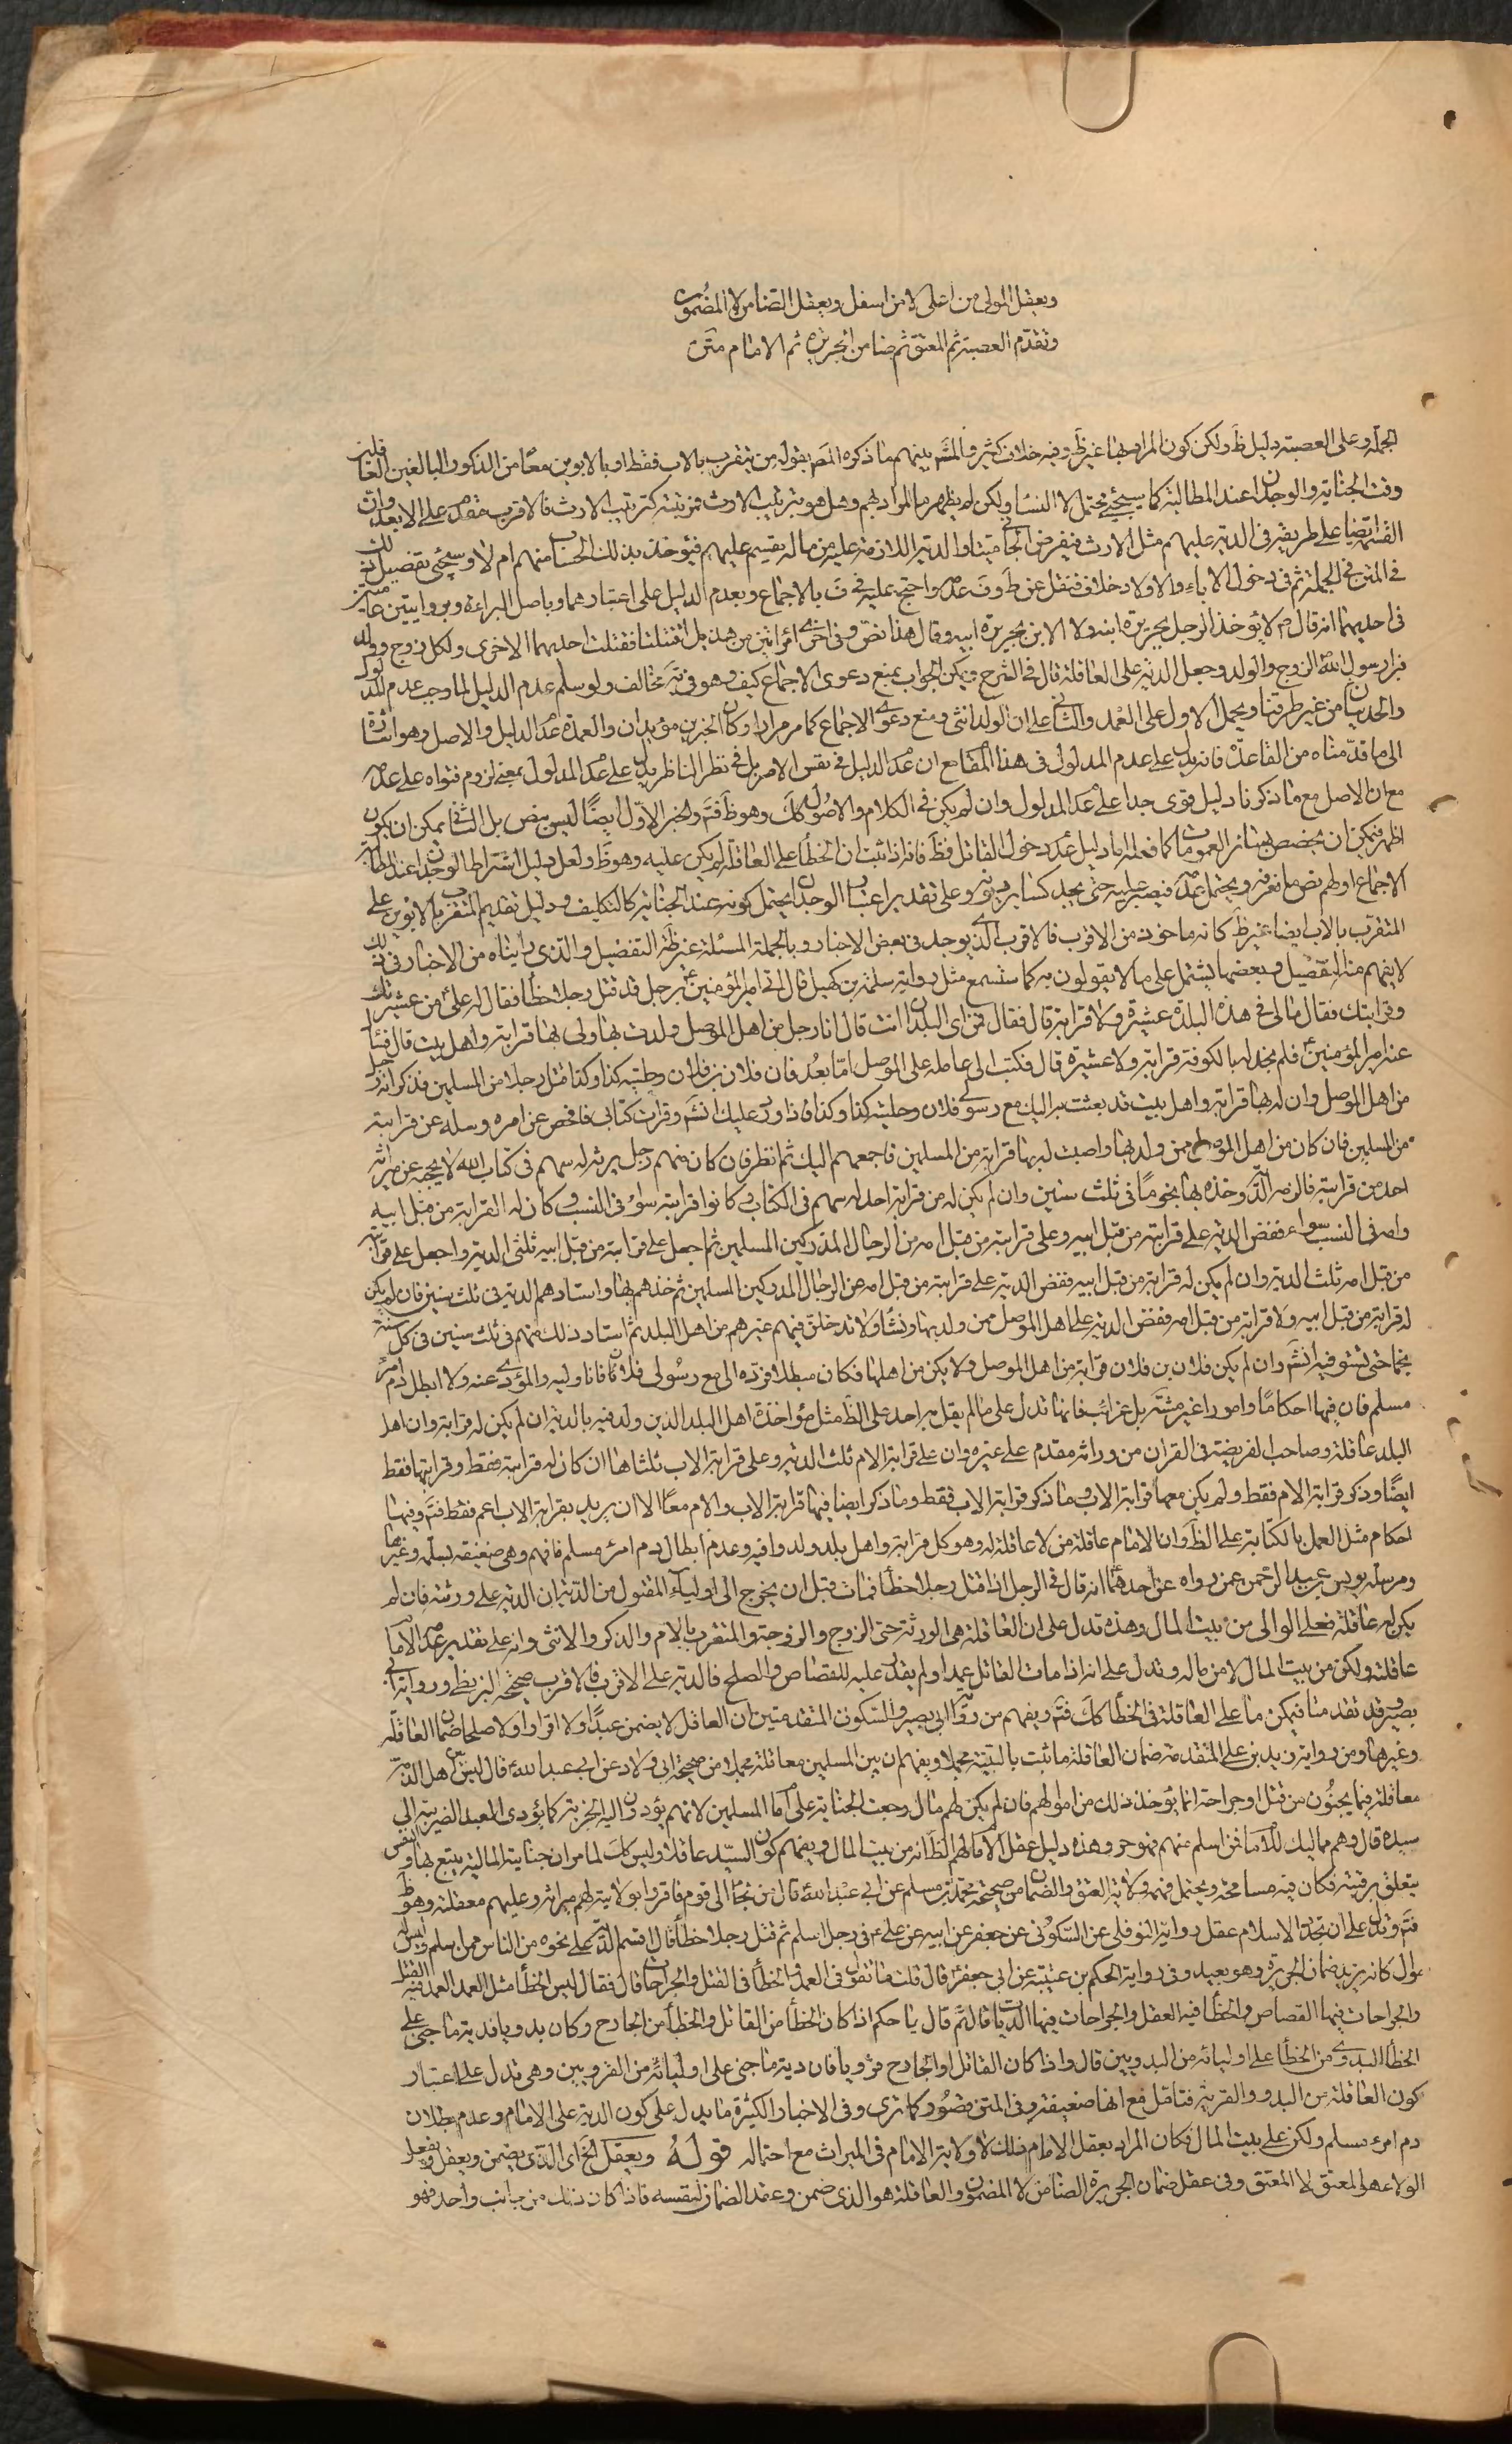 ويعقل المولى من اعلى لا من اسفل ويعقل الضامن لا المضمون
وتقدّم العصبة ثم المعتق ثم ضامن الجريرة ثم الامام متن
الجملة وعلى العصبة دليل ظ ولكن كون المراد بها غير ظ وفيه خلاف كثير والمشه بينهم ما ذكره المص بقوله من يتقرب بالاب فقط او بالابوين معًا من الذكور البالغين العاقلين
وقت الجناية والوجدان عند المطالبة كما سيجئ محتمل لا النساء ولكن لم يظهر ما المراد بهم وهل هو بترتيب الارث فترتيبه كترتيب الارث فالاقرب مقدم على الابعد وان
القسمة ايضا على طريقه فى الدية عليهم مثل الارث فيفرض الجانى ميتا والدية اللازمة عليه من ماله يقسم عليهم فيؤخذ بذلك الحساب منهم ام لا وسيجئ تفصيل ذلك
فى المتن فى الجملة ثم فى دخول الاباء والاولاد خلاف فنقل عن ط وف عدمه واحتج عليه فى ف بالاجماع وبعدم الدليل على اعتبارهما وباصل البراءة وبروايتين عاميتين
فى احديهما انه قال م لا يؤخذ الرجل بجريرة ابنه ولا الابن بجريرة ابيه وقال هذا نصّ وفى اخرى امراتين من هذيل اقتتلتا فقتلت احديهما الاخرى ولكل زوج وولد
فبرأ رسول الله الزوج والولد وجعل الدية على العاقلة قال فى الشرح ويمكن الجواب بمنع دعوى الاجماع كيف وهو فى يه مخالف ولو سلم عدم الدليل لما وجب عدم المدلول
والحديثان من غير طرقنا ويحمل الاول على العمد والثانى على ان الولد انثى ومنع دعوى الاجماع كما مر مرارا وكان الخبرين مؤيدان والعمدة عدم الدليل والاصل وهو اشارة
الى ما قدمناه من القاعدة فانه يدل على عدم المدلول فى هذا المقام مع ان عدم الدليل فى نفس الامر بل فى نظر الناظر يدل على عدم المدلول بمعنى لزوم فتواه على عدمه
مع ان الاصل مع ما ذكرنا دليل قوى جدا على عدم المدلول وان لم يكن فى الكلام والاصول كك وهو ظ فتم والخبر الاوّل ايضًا ليس بنص بل الثانى يمكن ان يكون
اظهر فيمكن ان يخصص بهما سائر العمومات كما فعله اما دليل عدم دخول القاتل فظ فانه اذا ثبت ان الخطأ على العاقلة لم يكن عليه وهو ظ ولعل دليل اشتراط الوجدان عند المطالبة
الاجماع او لهم نص ما نعرفه ويحتمل عدمه فيصبر عليه حتى يجد كسائر ديونه وعلى تقدير اعتبار الوجدان يحتمل كونه عند الجناية كالتكليف ودليل تقديم المتقرب بالابوين على
المتقرب بالاب ايضا غير ظ كانه ماخوذ من الاقرب فالاقرب الذى يوجد فى بعض الاخبار وبالجملة المسئلة غير ظاهرة التفصيل والذى رايناه من الاخبار فى ذلك
لا يفهم منه التفصيل وبعضها يشتمل على ما لا يقولون به كما ستسمع مثل رواية سلمة بن كهيل قال اتى امير المؤمنين ع برجل قد قتل رجلا خطأ فقال له على ع من عشيرتك
وقرابتك فقال مالى فى هذه البلدة عشيرة ولا قرابة قال فقال فمن اى البلدان انت قال انا رجل من اهل الموصل ولدت بها ولى بها قرابة واهل بيت قال فسأل
عنه امير المؤمنين ع فلم يجد له بالكوفة قرابة ولا عشيرة قال فكتب الى عامله على الموصل اما بعد فان فلان بن فلان وحليته كذا وكذا قتل رجلا من المسلمين فذكر انه رجل
من اهل الموصل وان له بها قرابة واهل بيت قد بعثت به اليك مع رسولى فلان وحليته كذا وكذا فاذا ورد عليك انشه وقرات كتابى فافحص عن امره وسله عن قرابته
من المسلمين فان كان من اهل الموصل ممن ولد بها واصبت له بها قرابة من المسلمين فاجمعهم اليك ثم انظر فان كان منهم رجل يرثه له سهم فى كتاب الله لا يحجبه عن ميراثه
احد من قرابته فالزمه الدية وخذه بها نجوماً فى ثلث سنين وان لم يكن له من قرابته احد له سهم فى الكتاب وكانوا قرابته سواء فى النسب وكان له القرابة من قبل ابيه
وامه فى النسب سواء ففض الدية على قرابته من قبل ابيه وعلى قرابته من قبل امه من الرجال المدركين المسلمين ثم اجعل على قرابته من قبل ابيه ثلثى الدية واجعل على قرابته
من قبل امه ثلث الدية وان لم يكن له قرابة من قبل ابيه ففض الدية على قرابته من قبل امه من الرجال المدركين المسلمين ثم خذهم بها واستادهم الدية فى ثلث سنين فان لم يكن
له قرابة من قبل ابيه ولا قرابة من قبل امه ففض الدية على اهل الموصل ممن ولد بها ونشأ ولا تدخلن فيهم غيرهم من اهل البلد ثم استاد ذلك منهم فى ثلث سنين فى كل سنة
نجما حتى تستوفيه انشه وان لم يكن فلان بن فلان قرابة من اهل الموصل ولا يكن من اهلها فكان مبطلا فرده الى مع رسولى فلان فانا وليه والمؤدى عنه ولا ابطل دم امرئ
مسلم فان فيها احكامًا وامورا غير مشتهرة بل غرائب فانها تدل على ما لم يقل به احد على الظ مثل مؤاخذة اهل البلد الذين ولد فيه بالدية ان لم يكن له قرابة وان اهل
البلد عاقلة وصاحب الفريضة فى القران من وراثه مقدم على غيره وان على قرابة الام ثلث الدية وعلى قرابة الاب ثلثاها ان كان له قرابته فقط وقرابتها فقط
ايضًا وذكر قرابة الام فقط ولم يكن معها قرابة الاب وما ذكر قرابة الاب فقط وما ذكر ايضا فيها قرابة الاب والام معًا الا ان يريد بقرابة الاب اعم فقط فتم وفيها
احكام مثل العمل بالكتابة على الظ وان الامام عاقلة من لا عاقلة له وهو كل قرابة واهل بلد ولدوا فيه وعدم ابطال دم امرئ مسلم فافهم وهى ضعيفة بسلمة وغيرها
ومرسلة يونس بن عبد الرحمن عمن رواه عن احدهما انه قال فى الرجل اذا قتل رجلا خطأ فمات قبل ان يخرج الى اولياء المقتول من الدية ان الدية على ورثته فان لم
يكن له عاقلة فعلى الوالى من بيت المال وهذه تدل على ان العاقلة هى الورثة حتى الزوج والزوجة والمتقرب بالام والذكر والانثى وانه على تقدير عدمه الامام
عاقلة ولكن من بيت المال لا من ماله وتدل على انه اذا مات القاتل عمدا ولم يقدر عليه للقصاص والصلح فالدية على الاقرب فالاقرب صحيحة البزنطى ورواية ابى
بصير وقد تقدمتا فيمكن ما على العاقلة فى الخطأ كك فتم ويفهم من رواية ابى بصير والسكونى المتقدمتين ان العاقل لا يضمن عبدًا ولا اقرارا ولا صلحا ضمان العاقلة
وغيرها ومن رواية زيد بن على المتقدمة ضمان العاقلة ما ثبت بالبينة مجملا ويفهم ان بين المسلمين معاقلة مجملا من صحيحة ابى ولاد عن ابى عبد الله ع قال ليس بين اهل الذمة
معاقلة فيما يجنون من قتل او جراحة انما يؤخذ ذلك من اموالهم فان لم يكن لهم مال رجعت الجناية على امام المسلمين لانهم يؤدون اليه الجزية كما يؤدى العبد الضريبة الى
سيده قال وهم مماليك للامام فمن اسلم منهم فهو حر وهذه دليل عقل الامام لهم الظ انه من بيت المال ويفهم كون السيّد عاقلا وليس كك لما مر ان جناية المالية يتبع بها والنفس
يتعلق برقبته فكان فيه مسامحة ويحتمل فهم ولاية العتق والضمان من صحيحة محمد بن مسلم عن ابى عبد الله ع قال من لجأ الى قوم فاقروا بولايته لهم ميراثه وعليهم معقلته وهو ظ
فتم وتدل على ان بجرد الاسلام عقل رواية النوفلى عن السكونى عن جعفر عن ابيه عن على ع فى رجل اسلم ثم قتل رجلا خطأ قال اقسم الدية على نحوه من الناس ممن اسلم وليس له
موال كانه يريد ضمان الجريرة وهو بعيد وفى رواية الحكم بن عتيبة عن ابى جعفر ع قال قلت ما تقول فى العمد والخطأ فى القتل والجراحات قال فقال ليس الخطأ مثل العمد العمد فيه القتل
والجراحات فيها القصاص والخطأ فيه العقل والجراحات فيها الديات قال ثم قال يا حكم اذا كان الخطأ من القاتل والخطأ من الجارح وكان بدويا فدية ما جنى على
الخطأ البدوى من الخطأ على اوليائه من البدويين قال واذا كان القاتل او الجارح قرويا فان دية ما جنى على اوليائه من القرويين وهى تدل على اعتبار
كون العاقلة من البدو والقرية فتامل مع انها ضعيفة وفى المتن قصور كما ترى وفى الاخبار الكثيرة ما يدل على كون الدية على الامام وعدم بطلان
دم امرء مسلم ولكن على بيت المال فكان المراد بعقل الامام ذلك لا ولاية الامام فى الميراث مع احتماله قوله ويعقل الخ اى الذى يضمن ويعقل ويفعل
الولاء هو المعتق لا المعتق وفى عقل ضمان الجريرة الضامن لا المضمون والعاقلة هو الذى ضمن وعقد الضمان لنفسه فاذا كان ذلك من جانب واحد فهو